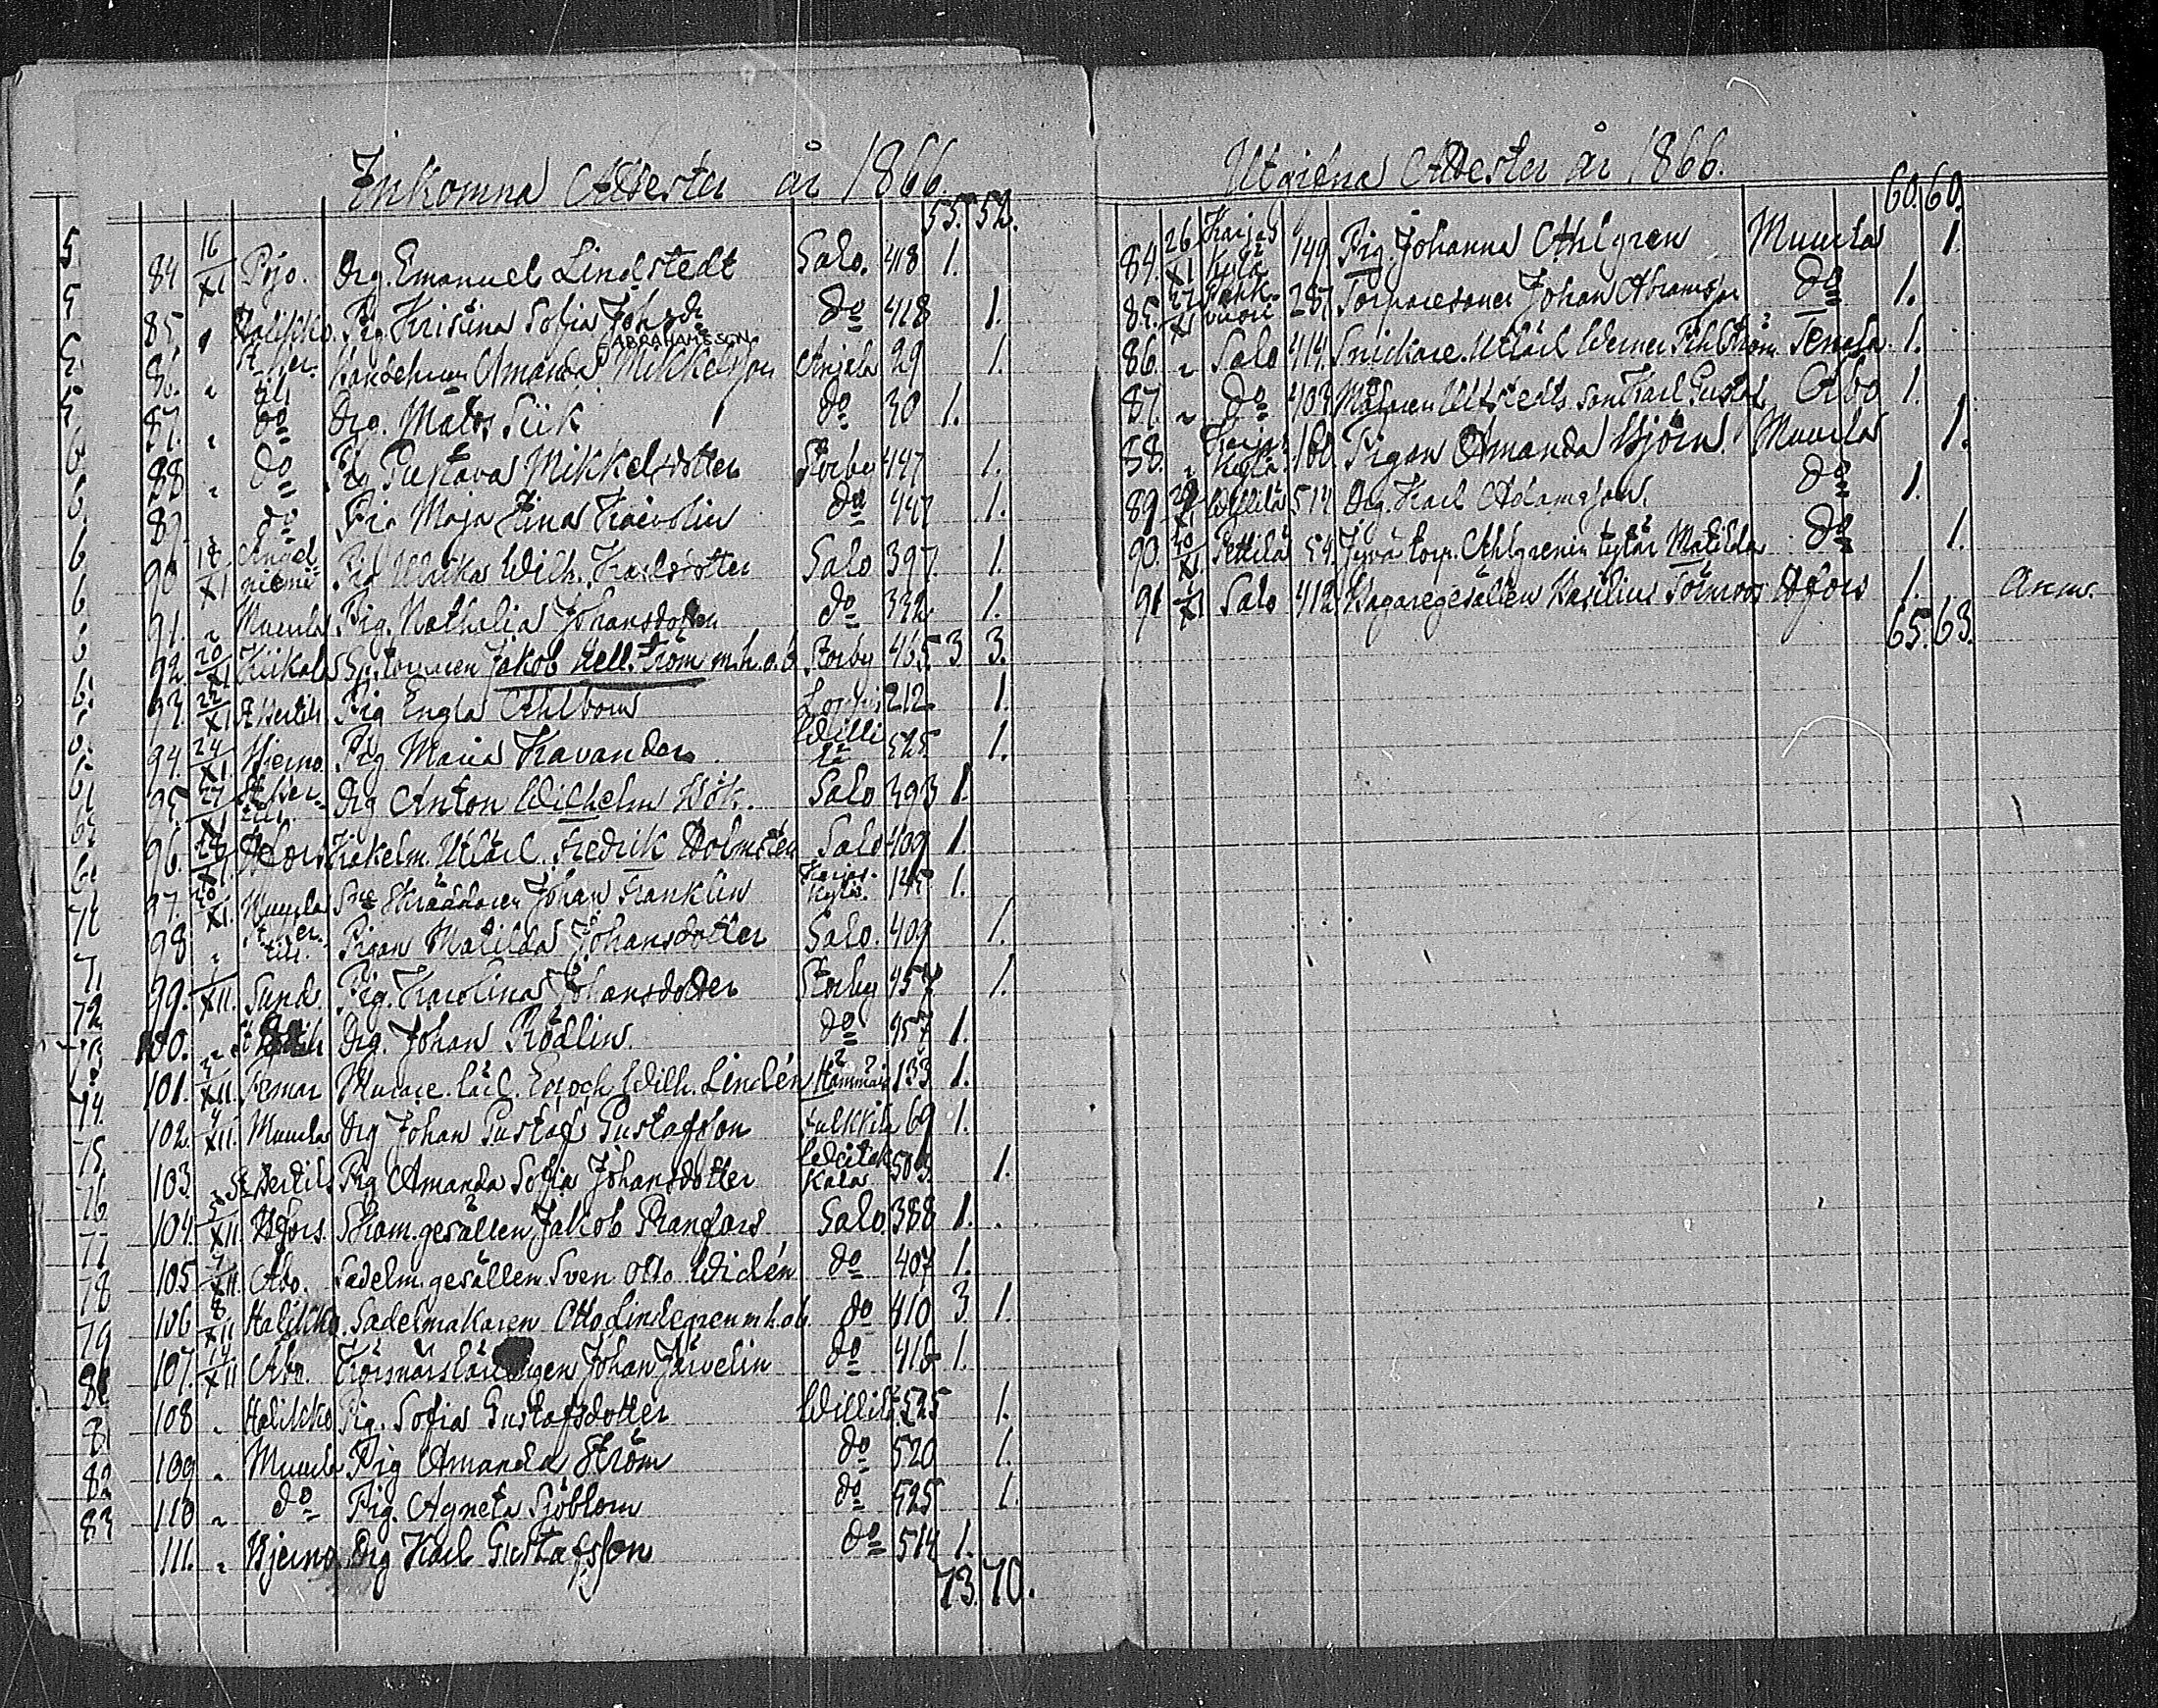 Inkomna Attester år 1866.
55. 52.
84 16/XI Pojo. Drg. Emanuel Lindstedt Salo. 418 1.
85. Halikko. Pig. Kristina Sofia Johsdr do 418 1.
ABRAHAMSSON
86. " St. Ber-til Amanda Mikkelsson Anjala 29 1.
87. " do Drg. Mats Siik do 30 1.
88. " do Pig Gustava Mikkelsdotter Storby 447 1.
89. " do Pig Maja Stina do 447 1.
90 17/XI Angel-niemi Pig Ulrika Wilh. Karlsdotter Salo 397. 1.
91. " Muurla Pig. Nathalia Johansdotter do 392 1.
92. 20/XI Kiikala Jakob Hellström m.h.o.b. Storby 465 3 3.
93. 22/XI St Bertils Pig Engla Ahlbom 212 1.
94. 24/XI Bjerno. Pig Maria Kavander Willi-lä 525. 1.
95. 27/XI St Ber-tils Drg Anton Wilhelm Bök. Salo 393 1.
96. 28/XI Hfors Kakelm. Utlärl. Fredrik Holmsten Salo 409 1.
97. 30/XI. Muurla Sne Skräddaren Johan Franklin Karjas-kylä. 145 1.
98 " St. Ber-tils. Pigan Matilda Johansdotter Salo. 409 1.
99. 1/XII. Sund. Pig. Karolina Johansdotter Storby 457 1.
100. " Drg. Johan Rödlin. do 457 1.
101. 3/XII. Pemar Murare lärl. Enoch Wilh. Lindén Hämmäis 133 1.
102. 4/XII. Muurla Drg Johan Gustaf Gustafsson Tulkkila 69 1.
103. " St Bertils Pig Amanda Sofia Johansdotter 503. 1.
104. 5/XII. Hfors. Skom. gesällen Jakob Ranfors Salo 388 1.
105 7/XII. Åbo. Sadelm. gesällen Sven Otto Widén do 407 1.
106 8/XII Halikko. Sadelmakaren Otto Lindegren m.h.o.b. do 410 3. 1.
107. 14/XII Åbo. Johan Järvelin do 418 1.
108 " Halikko Pig. Sofia Gustafsdotter Willilä 525 1.
109 " Muurla Pig Amanda Ström do 520 1.
110 " do Pig. Agneta Sjöblom do 525 1.
111. " Bjerno Drg Karl Gustafsson do 514 1.
73. 70.
Utgifna Attester år 1866.
60. 60.
84. 26/XI Karjas kylä 149 Pig. Johanna Ahlgren Muurla 1.
85. 27/XI 287 Torparesonen Johan Abramsson do 1.
86. " Salo 414. Snickare. Utlärl Werner Fihlström Temela 1.
87. " do 403. Målaren Uttstedts son Karl Gustaf Åbo 1.
88. " Karjas kylä. 160. Pigan Amanda Björn. Muurla 1.
89 29/XI Willilä 514 Drg. Karl Adamsson. do 1.
90. 30/XI Pettilä 54. Jyvä torp. Ahlgrenin tytär Matilda do 1.
91 Salo 412 Bagaregesällen Basilius Törnroos Hfors 1. Anm.
65. 63.